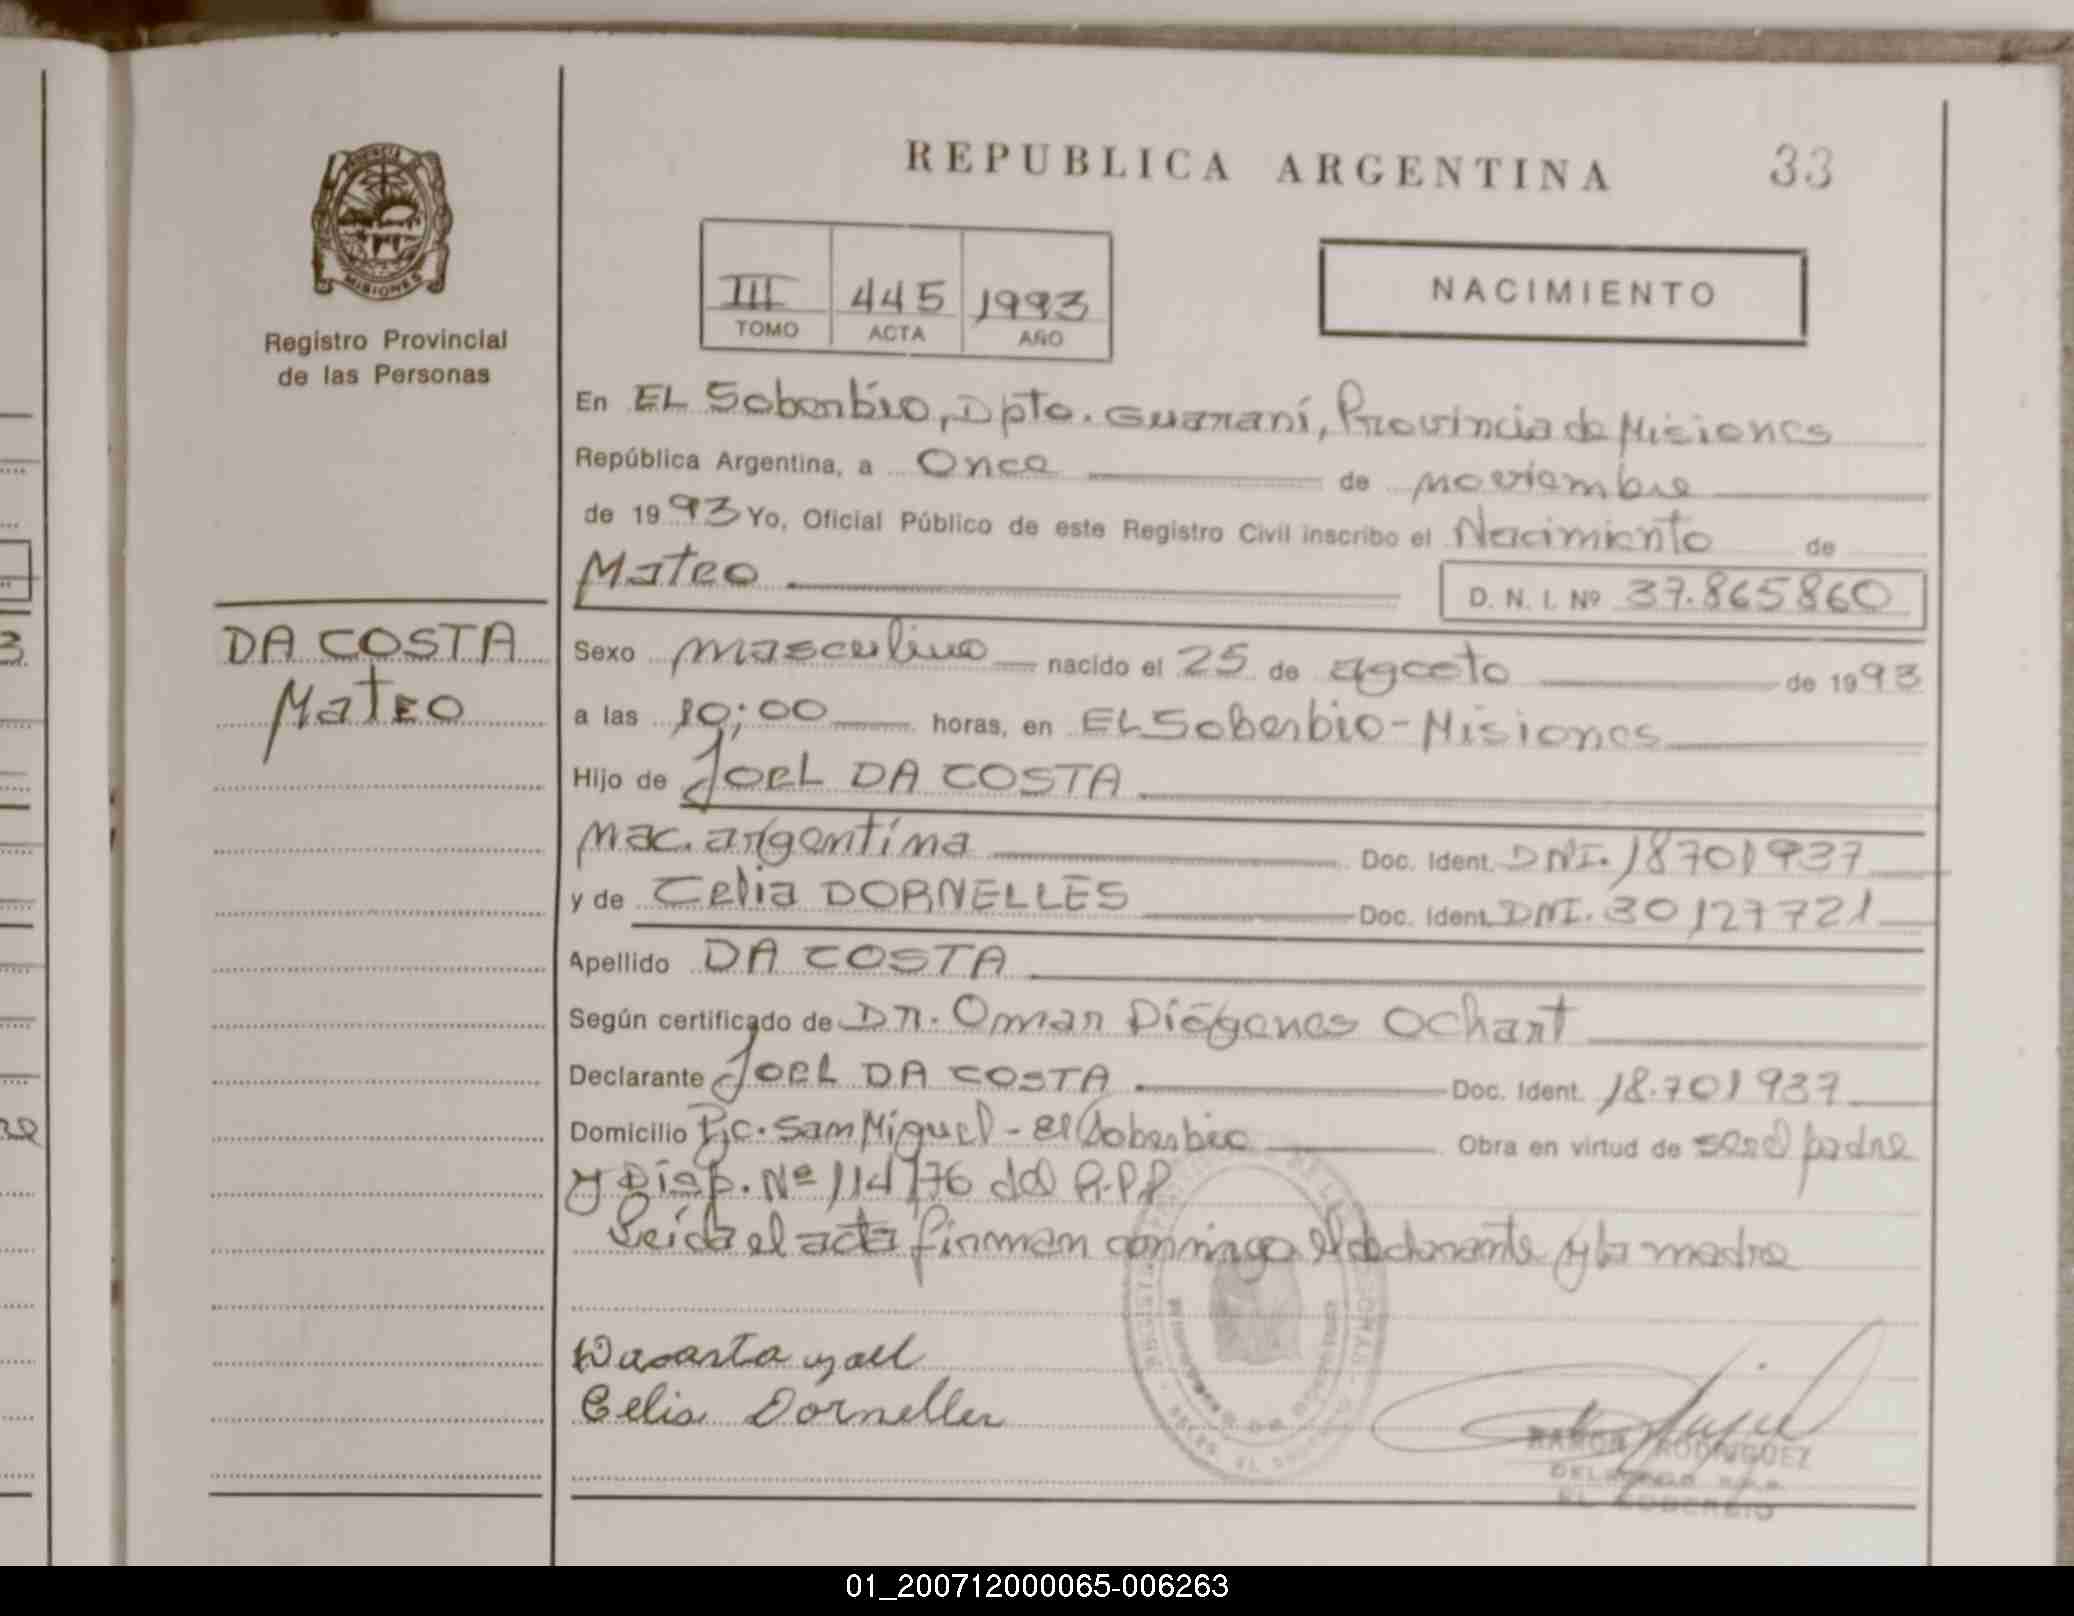 REPUBLICA ARGENTINA
33
PROVINCIA DE
MISIONES
Registro Provincial
de las Personas
III 445 1993
TOMO ACTA AÑO
NACIMIENTO
En EL Soberbio, Dpto. Guaraní, Provincia de Misiones
República Argentina, a Once de noviembre
de 1993 Yo, Oficial Público de este Registro Civil inscribo el Nacimiento de
Mateo D. N. I. Nº 37.865860
DA COSTA
Mateo
Sexo masculino nacido el 25 de agosto de 1993
a las 10:00 horas, en EL Soberbio - Misiones
Hijo de Joel DA COSTA
Nac. argentina Doc. Ident. DNI. 18701937
y de Celia DORNELLES Doc. Ident. DNI. 30127721
Apellido DA COSTA
Según certificado de Dr. Omar Diógenes Ochart
Declarante Joel DA COSTA Doc. Ident. 18.701937
Domicilio Pje. San Miguel - El Soberbio Obra en virtud de ser el padre
y Disp. Nº 114/76 del R.P.P
Leída el acta firman conmigo el declarante y la madre
Celia Dorneller
RAMON RODRIGUEZ
DELEGADO R.P.P.
EL SOBERBIO
3.
01_200712000065-006263